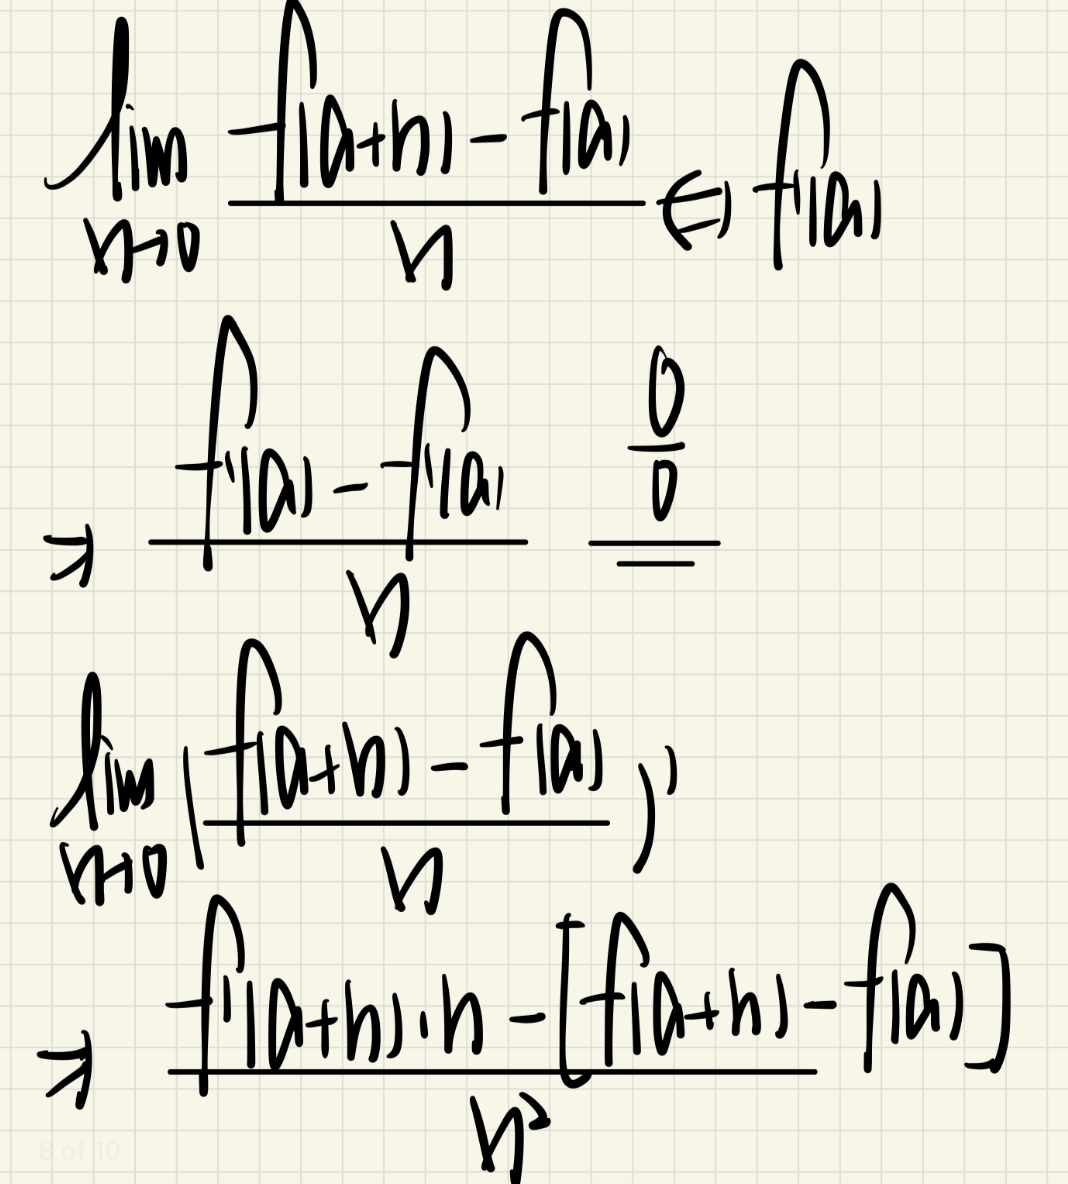 lim h→0 (f(a+h) - f(a))/h ⇔ f'(a)
⇒ (f'(a) - f'(a))/h 0/0
lim h→0 ((f(a+h) - f(a))/h)'
⇒ (f'(a+h)·h - [f(a+h) - f(a)])/h²
8 of 10